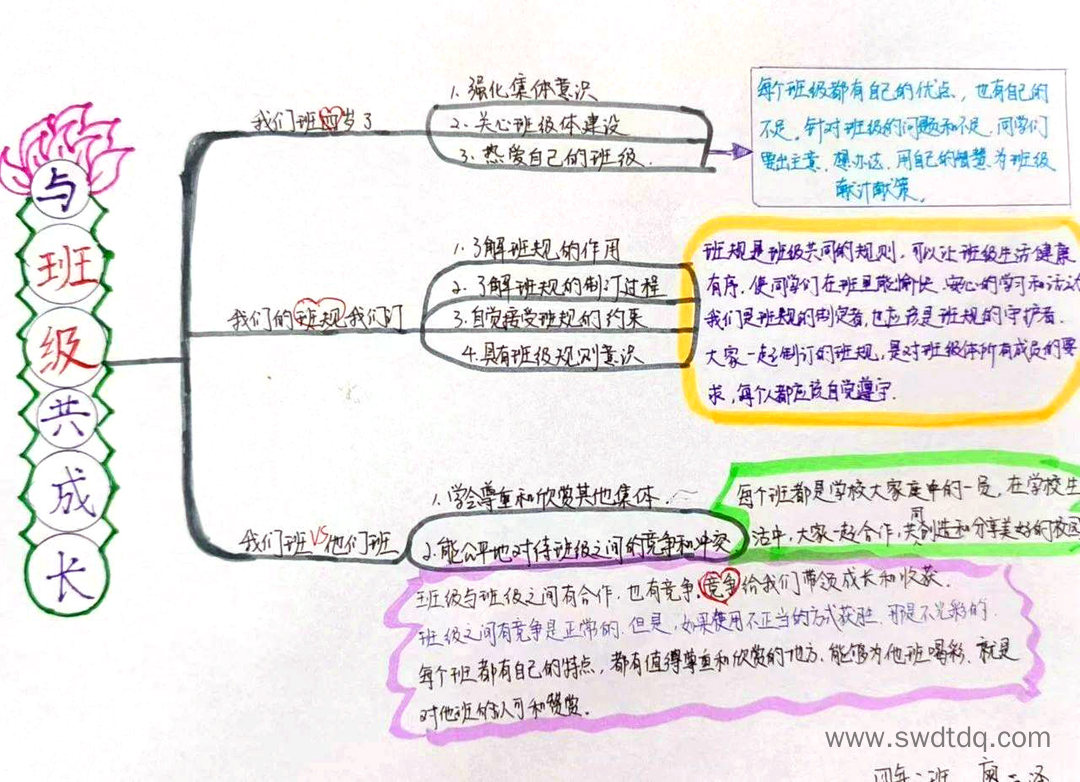 与班级共成长
我们班四岁了
1.强化集体意识
2.关心班级体建设
3.热爱自己的班级.
每个班级都有自己的优点，也有自己的
不足，针对班级的问题和不足，同学们
要出主意，想办法，用自己的智慧为班级
献计献策。
我们的班规我们订
1.了解班规的作用
2.了解班规的制订过程
3.自觉接受班规的约束
4.具有班级规则意识
班规是班级共同的规则，可以让班级生活健康
有序，使同学们在班里能愉快、安心的学习和活动
我们是班规的制定者,也应该是班规的守护者.
大家一起制订的班规，是对班级体所有成员的要
求，每个人都应该自觉遵守.
我们班VS他们班
1.学会尊重和欣赏其他集体.
2.能公平地对待班级之间的竞争和冲突
每个班都是学校大家庭中的一员，在学校生
活中，大家一起合作，共同创造和分享美好的校园
班级与班级之间有合作，也有竞争，竞争给我们带领成长和收获.
班级之间有竞争是正常的，但是，如果使用不正当的方式获胜，那是不光彩的.
每个班都有自己的特点，都有值得尊重和欣赏的地方，能够为他班喝彩，就是
对他班的认可和赞赏.
www.swdtdq.com